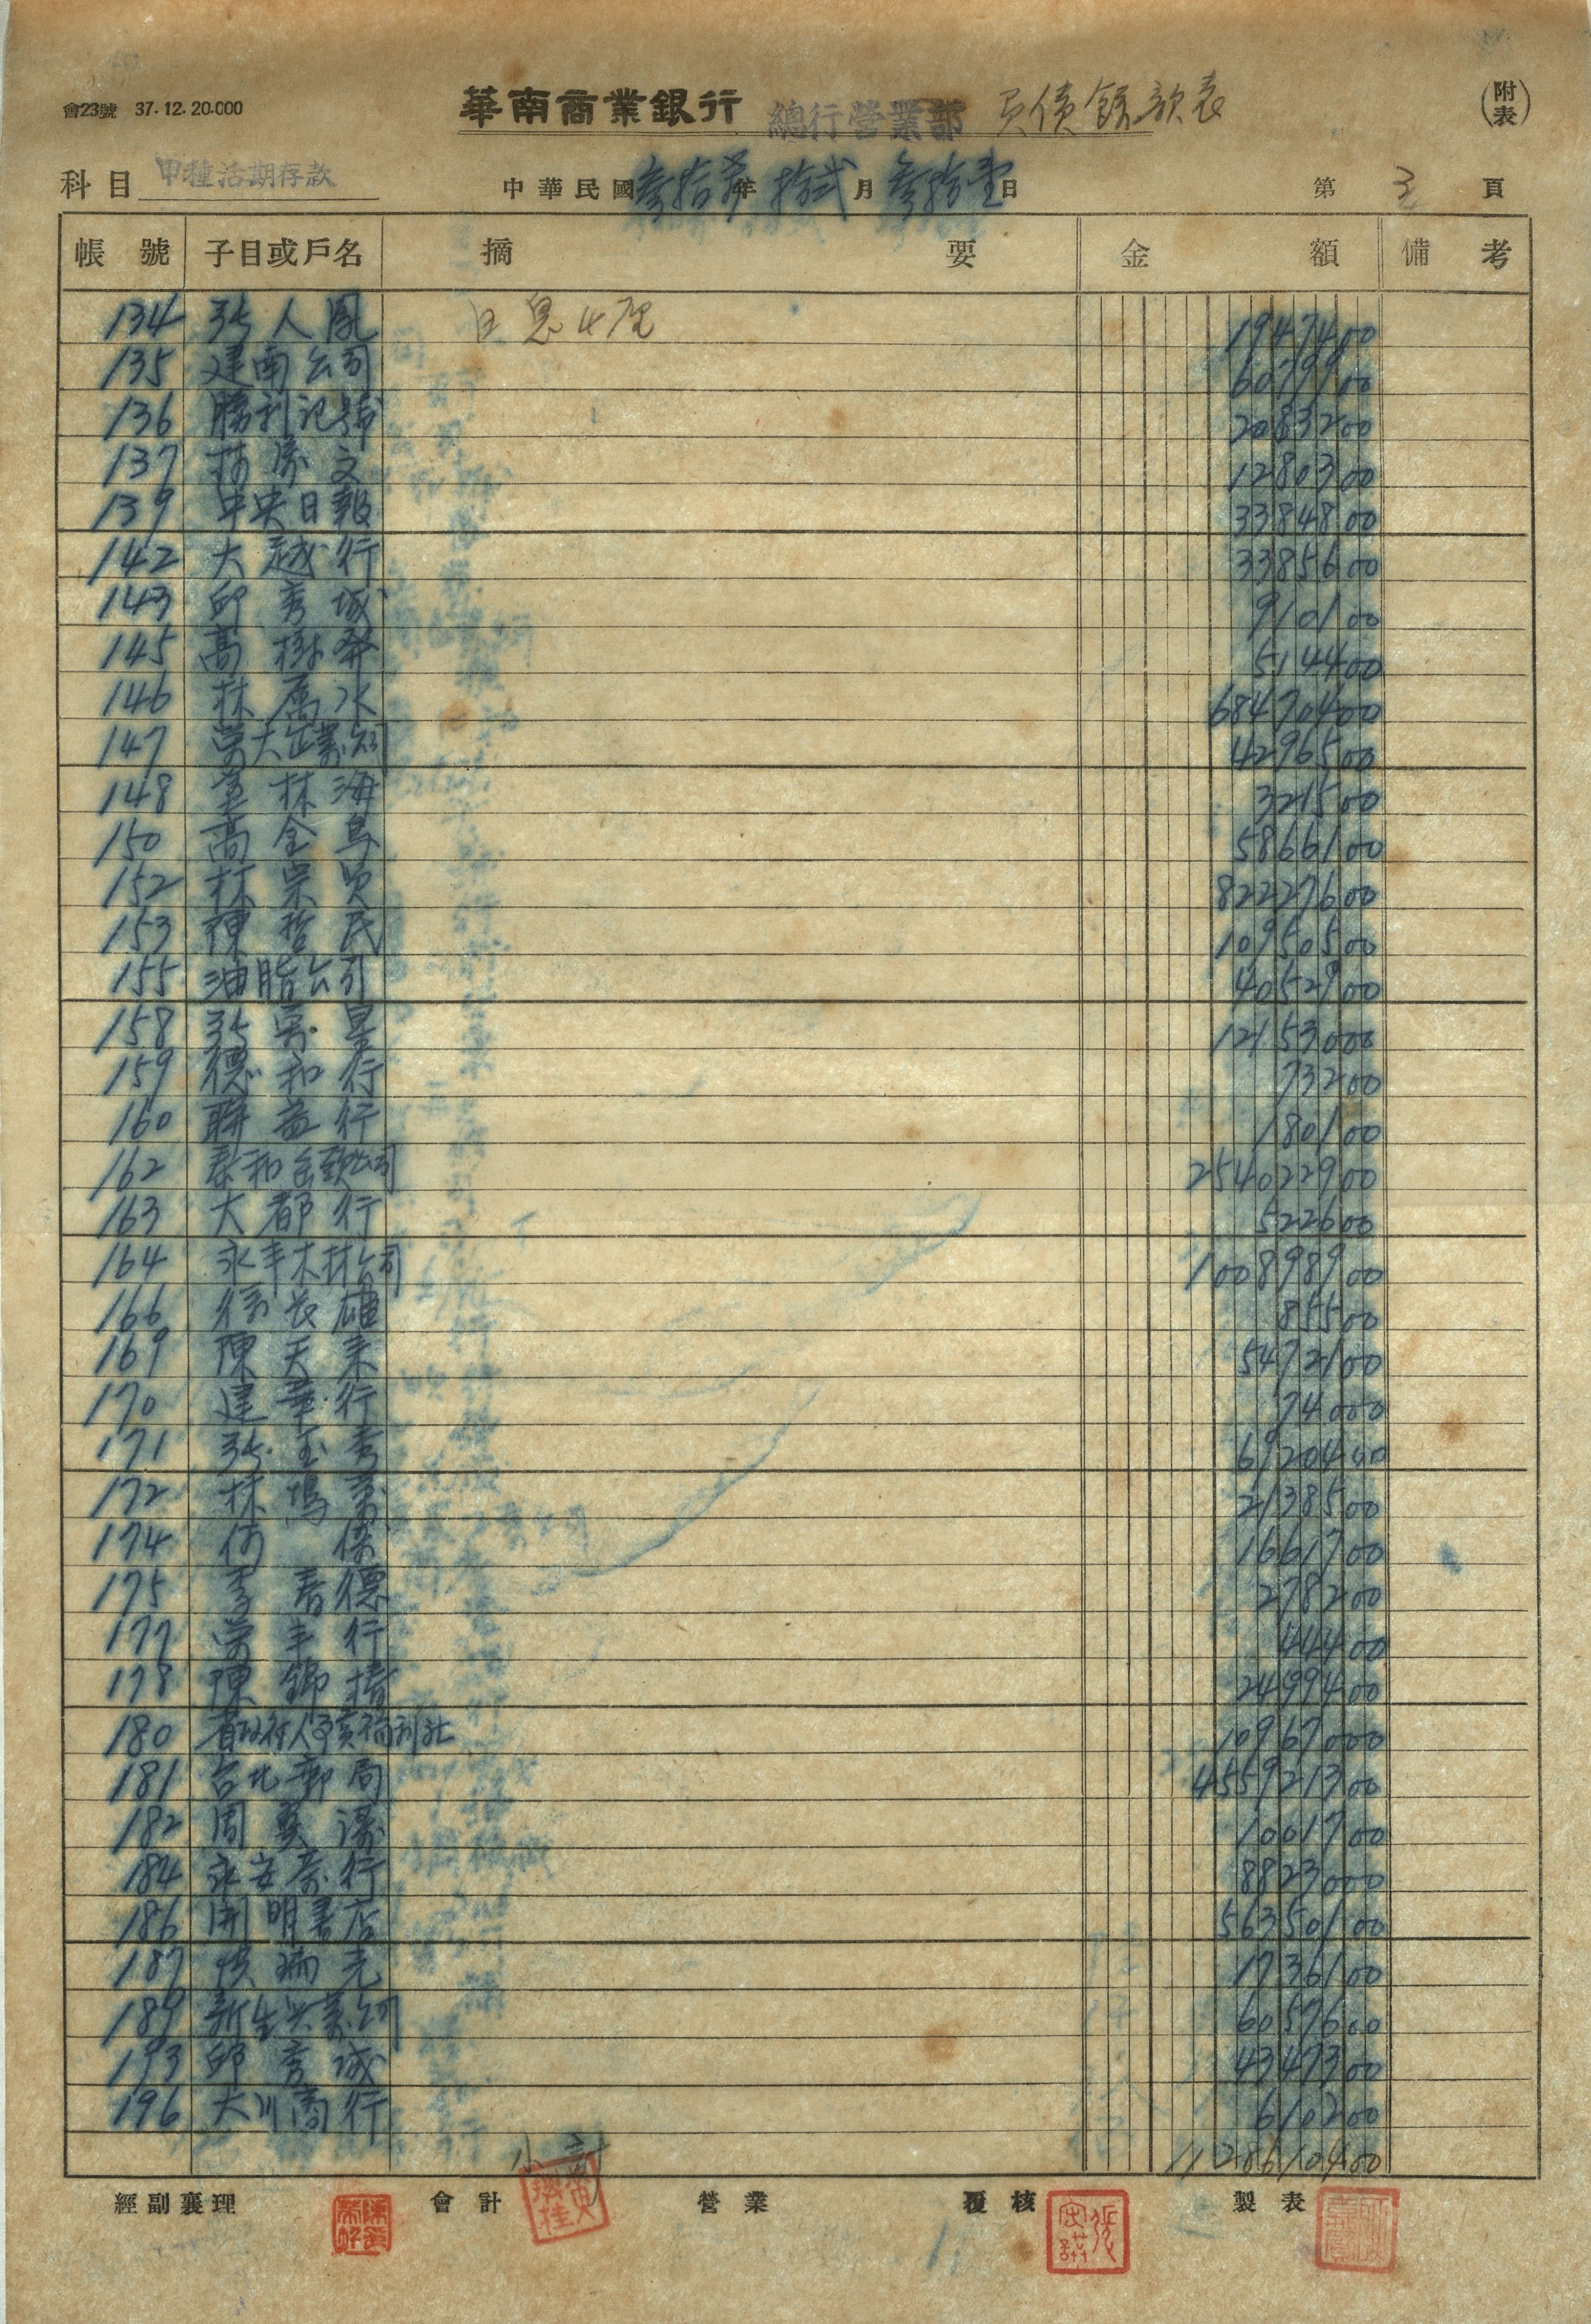 會23號 37.12.20.000
華南商業銀行 總行營業部 負債餘款表
(附表)
科目 甲種活期存款
中華民國 叁拾 年 拾弍 月 叁拾壹 日
第 3 頁
帳號 子目或戶名 摘要 金額 備考
134 張人鳳 日息4厘 1947400
135 建南公司 6079900
136 勝利記號 2083200
137 林 文 1280300
139 中央日報 3384800
142 大越行 3385600
143 邱秀城 910100
145 高樹發 514400
146 林萬水 68470400
147 萬大企業公司 4296500
148 董林海 321500
150 高金鳥 5866100
152 林宗贤 82227600
153 陳哲民 10950500
155 油脂公司 4052900
158 張萬 12153000
159 德和行 73200
160 聯益行 180100
162 泰和 公司 254022900
163 大都行 522600
164 永丰木材公司 100898900
166 徐長雄 85500
169 陳天来 5472100
170 建華行 74000
171 張玉秀 6920400
172 林 2138500
174 何傑 1661700
175 李春德 278200
177 萬丰行 44400
178 陳錦 2499400
180 省政府人事 福利社 10967000
181 台北郵局 455921300
182 周 1001700
184 永安 行 8823000
186 開明書店 56350100
187 瑞光 1736100
189 新生兴業公司 6057600
193 邱秀城 4347300
196 大川商行 610200
小計 1128610400
經副襄理 會計 營業 覆核 製表